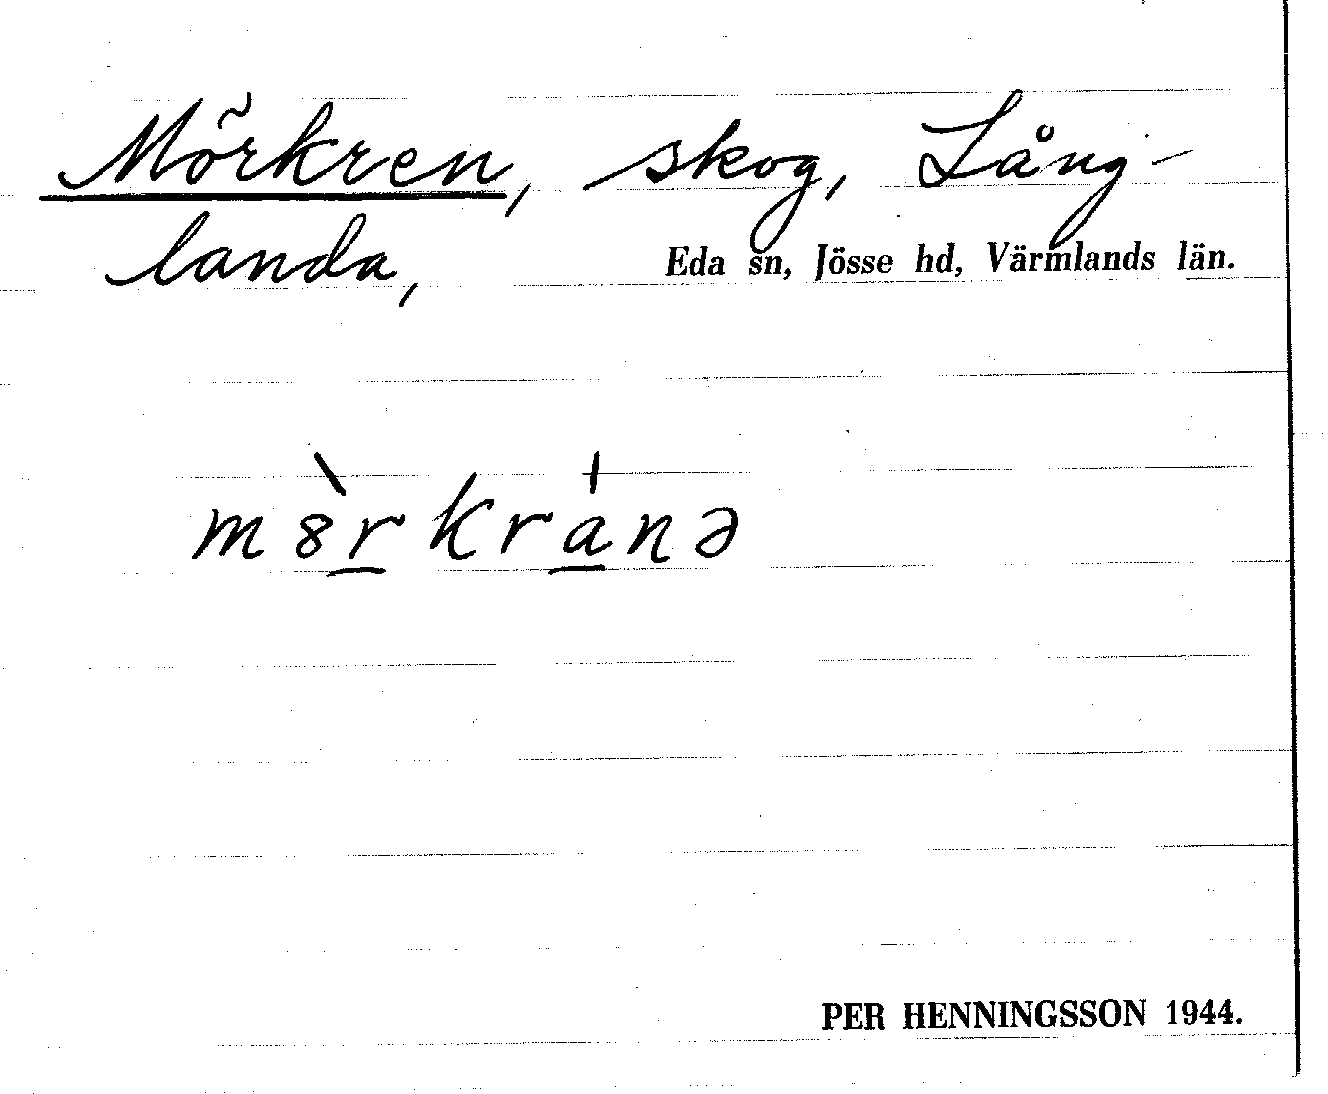 Mörkren, skog, Lång-
landa, Eda sn, Jösse hd, Värmlands län.
m8̀rkránə
PER HENNINGSSON 1944.